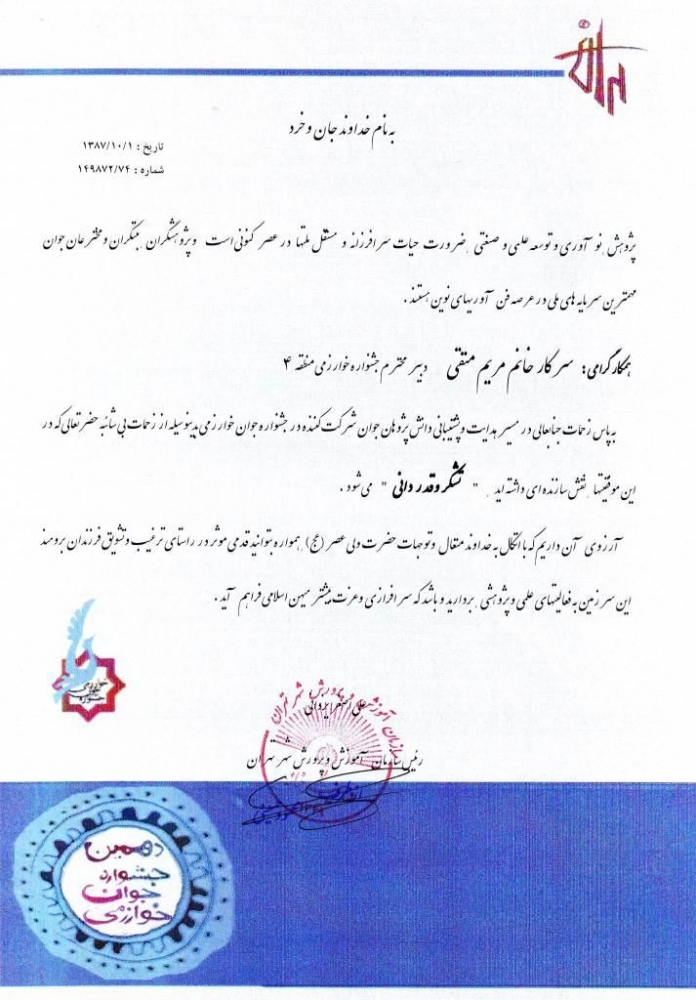 به نام خداوند جان و خرد
تاریخ : ۱۳۸۷/۱۰/۱
شماره : ۱۴۹۸۷۲/۷۴
پژوهش نو آوری و توسعه علمی و صنعتی ضرورت حیات سرافرزانه و مستقل ملتها در عصر کنونی است و پژوهشگران مبتکران و مخترعان جوان
مهمترین سرمایه های ملی در عرصه فن آوریهای نوین هستند .
همکار گرامی: سرکار خانم مریم متقی دبیر محترم جشنواره خوارزمی منطقه ۴
به پاس زحمات جنابعالی در مسیر هدایت و پشتیبانی دانش پژوهان جوان شرکت کننده در جشنواره جوان خوارزمی بدینوسیله از زحمات بی شائبه حضرتعالی که در
این موفقیتها نقش سازنده ای داشته اید " تشکر و قدر دانی " می شود .
آرزوی آن داریم که با اتکال به خداوند متعال و توجهات حضرت ولی عصر (عج) همواره بتوانید قدمی موثر در راستای ترغیب و تشویق فرزندان برومند
این سرزمین به فعالیتهای علمی و پژوهشی بردارید و باشد که سرافرازی و عزت بیشتر میهن اسلامی فراهم آید .
علی اصغر یزدانی
رئیس سازمان آموزش و پرورش شهر تهران
سازمان آموزش و پرورش شهر تهران
دهمین
جشنواره
جوان
خوارزمی